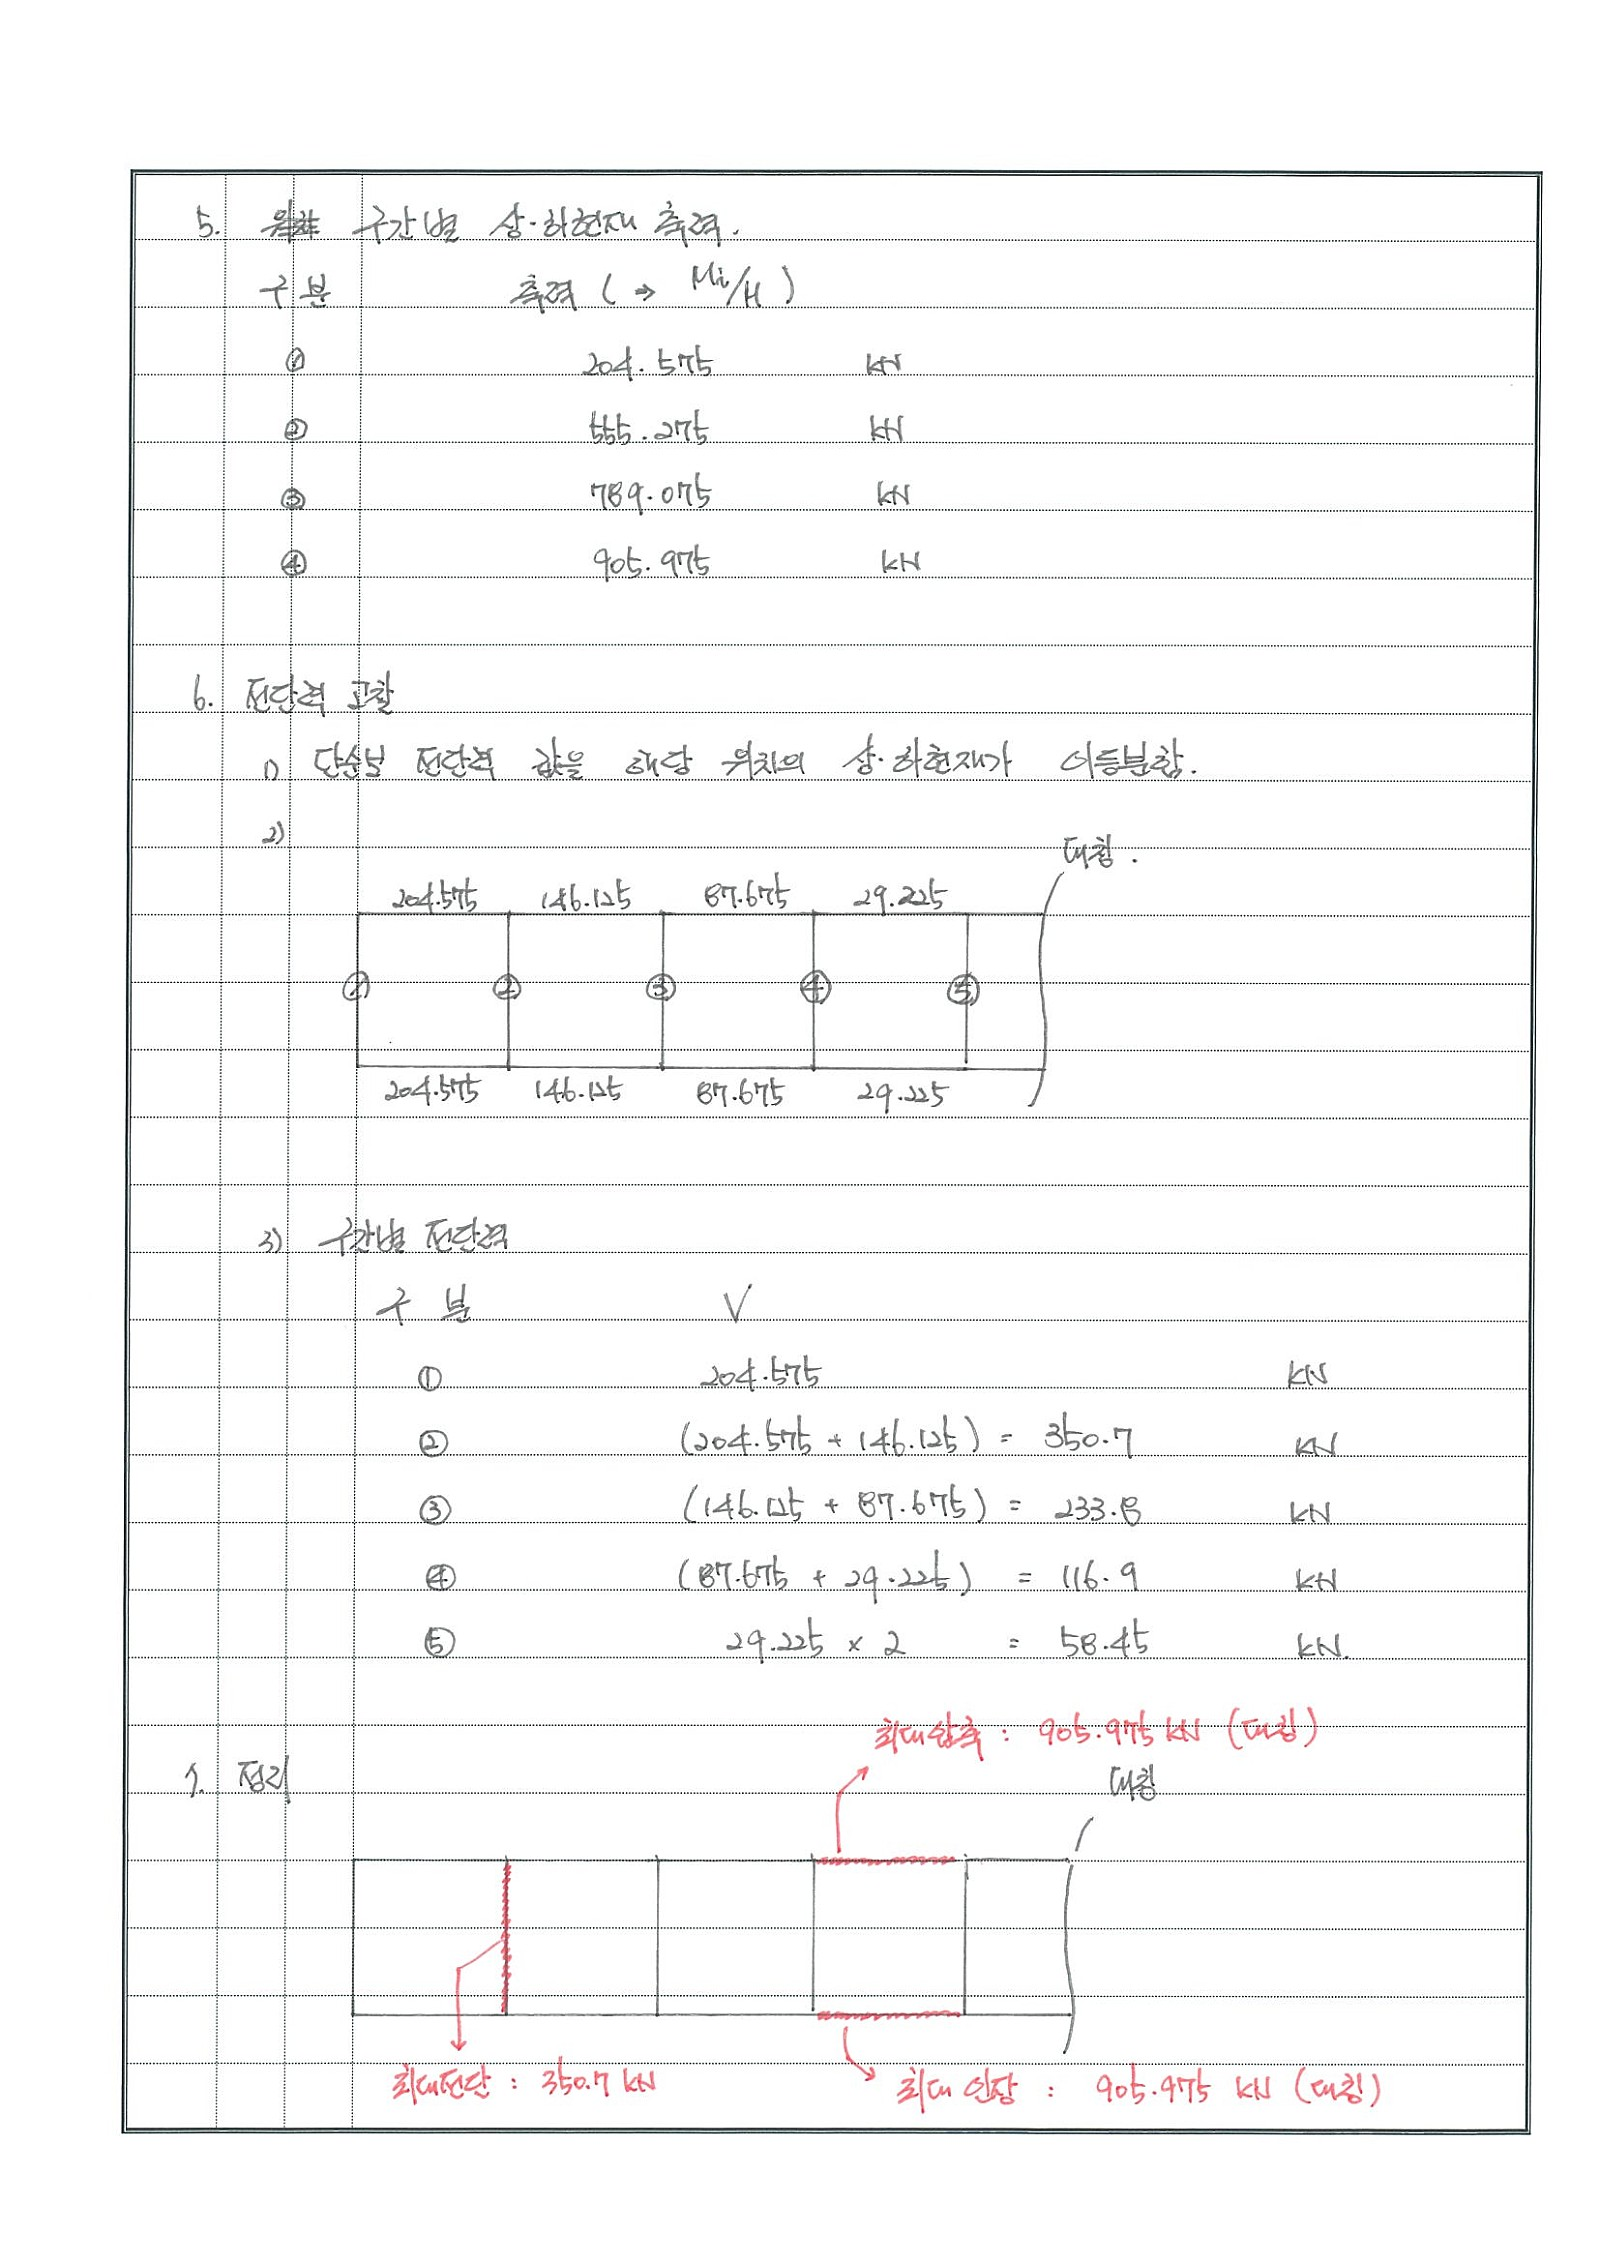 5. 구간별 상·하현재 축력.
구분 축력 ( → Mi/H )
① 204.575 kN
② 555.275 kN
③ 789.075 kN
④ 905.975 kN
6. 전단력 고찰
1) 단순보 전단력 값을 해당 위치의 상·하현재가 이등분함.
2)
대칭.
204.575 146.125 87.675 29.225
① ② ③ ④ ⑤
204.575 146.125 87.675 29.225
3) 구간별 전단력
구 분 V
① 204.575 kN
② (204.575 + 146.125) = 350.7 kN
③ (146.125 + 87.675) = 233.8 kN
④ (87.675 + 29.225) = 116.9 kN
⑤ 29.225 × 2 = 58.45 kN.
최대압축 : 905.975 kN (대칭)
7. 정리
대칭
최대전단 : 350.7 kN
최대 인장 : 905.975 kN (대칭)